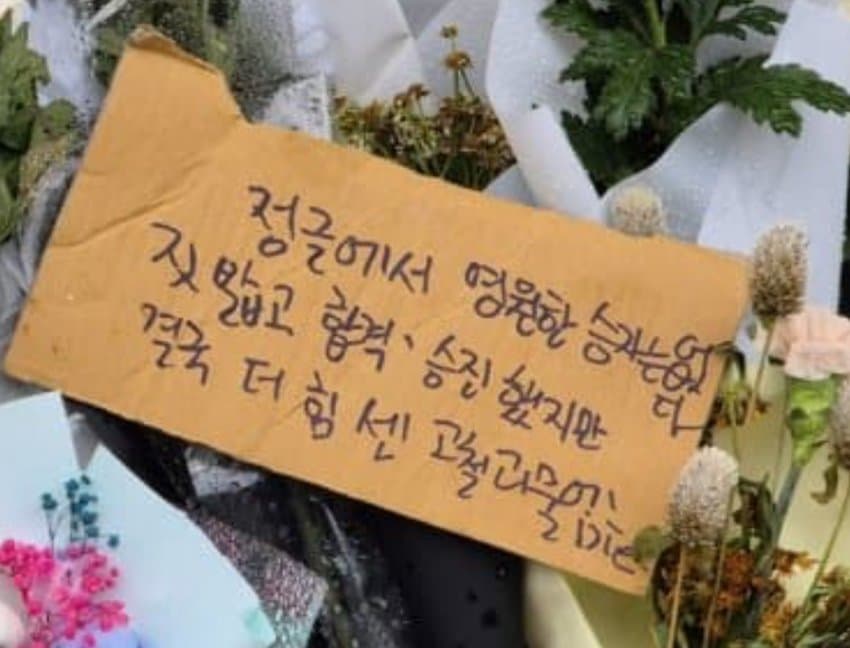 정글에서 영원한 승자는 없다
짓밟고 합격、승진 했지만
결국 더 힘 센 고철괴물에